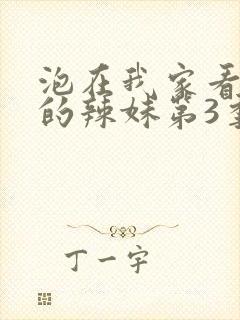 泡在我家看
的辣妹第3季
丁一宇